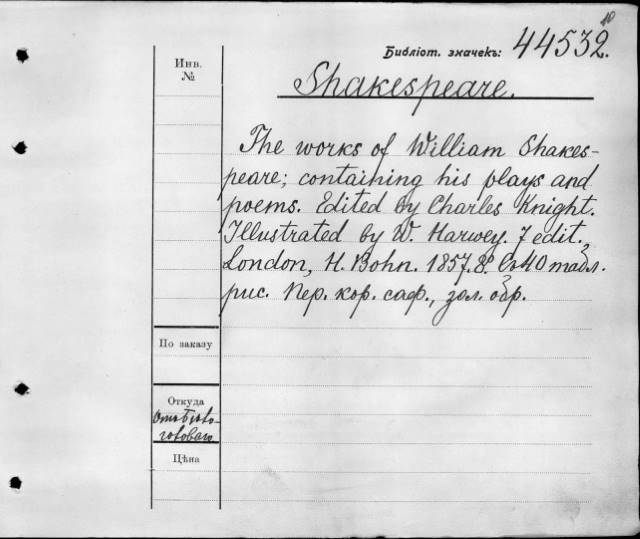 10
Библіот. значекъ: 44532.
Инв.
№
Shakespeare.
The works of William Shakes-
peare; containing his plays and
poems. Edited by Charles Knight.
Illustrated by W. Harwey. 7 edit.,
London, H. Bohn. 1857. 8º. Съ 40 табл.
рис. Пер. кор. саф., зол. обр.
По заказу
Откуда
Цѣна